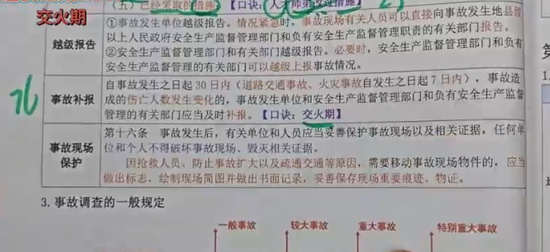 交火期
(五)已经采取的措施; 【口诀:人
越级报告
①事故发生单位越级报告。情况紧急时,事故现场有关人员可以直接向事故发生地县级
以上人民政府安全生产监督管理部门和负有安全生产监督管理职责的有关部门报告。
②安全生产监督管理部门和有关部门越级报告。必要时,安全生产监督管理部门和负有
安全生产监督管理的有关部门可以越级上报事故情况。
事故补报
自事故发生之日起30日内(道路交通事故、火灾事故自发生之日起7日内),事故造
成的伤亡人数发生变化的,事故发生单位和安全生产监督管理部门和负有安全生产监督
管理的有关部门应当及时补报。【口诀:交火期】
事故现场
保护
第十六条 事故发生后,有关单位和人员应当妥善保护事故现场以及相关证据,任何单
位和个人不得破坏事故现场、毁灭相关证据。
因抢救人员、防止事故扩大以及疏通交通等原因,需要移动事故现场物件的,应当
做出标志,绘制现场简图并做出书面记录,妥善保存现场重要痕迹、物证。
3.事故调查的一般规定
一般事故 较大事故 重大事故 特别重大事故
第
1.